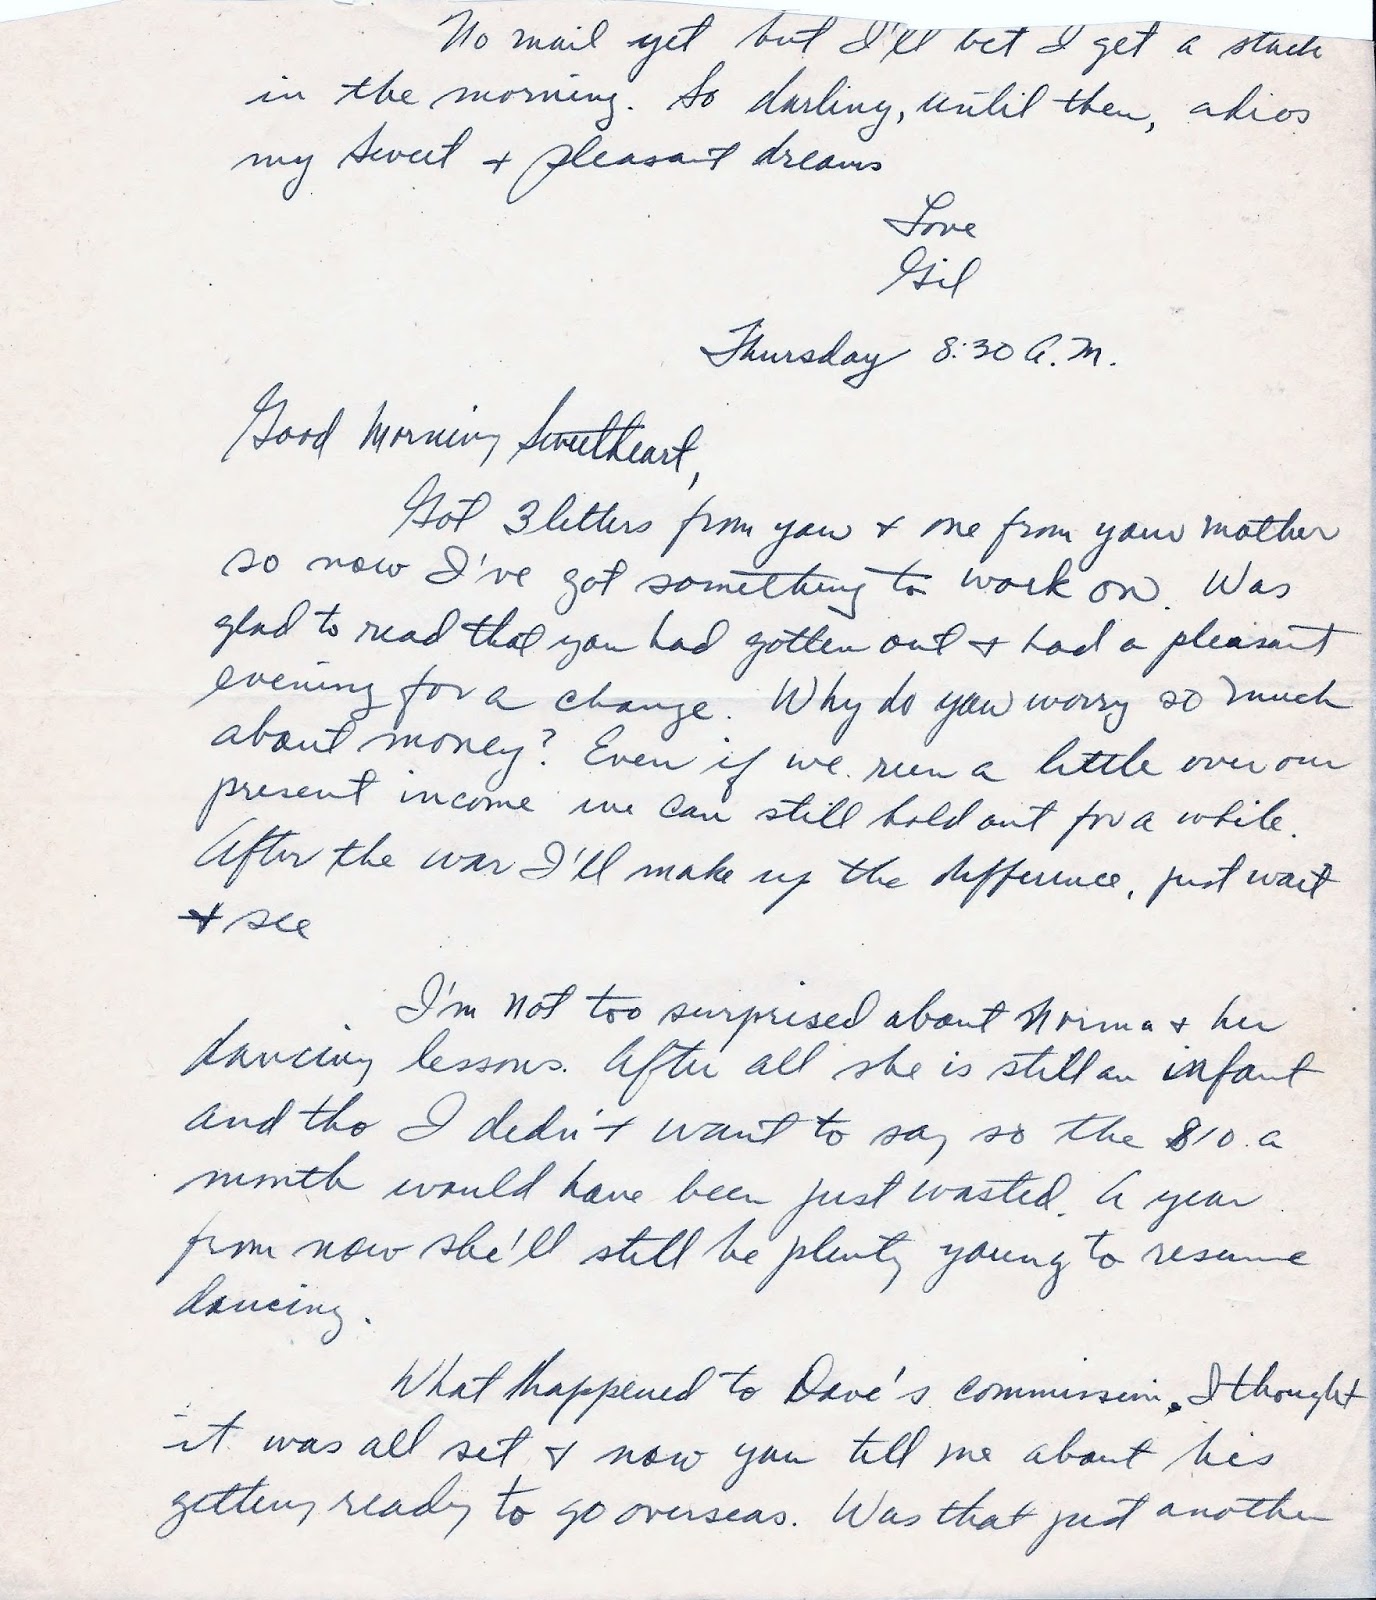 No mail yet but I'll bet I get a stack
in the morning. So darling, until then, adios
my sweet + pleasant dreams
Love
Gil
Thursday 8:30 A.M.
Good Morning Sweetheart,
Got 3 letters from you + one from your mother
so now I've got something to work on. Was
glad to read that you had gotten out + had a pleasant
evening for a change. Why do you worry so much
about money? Even if we run a little over our
present income we can still hold out for a while.
After the war I'll make up the difference, just wait
+ see
I'm not too surprised about Norma + her
dancing lessons. After all she is still an infant
and tho I didn't want to say so the $10. a
month would have been just wasted. A year
from now she'll still be plenty young to resume
dancing.
What happened to Dave's commission. I thought
it was all set + now you tell me about his
getting ready to go overseas. Was that just another